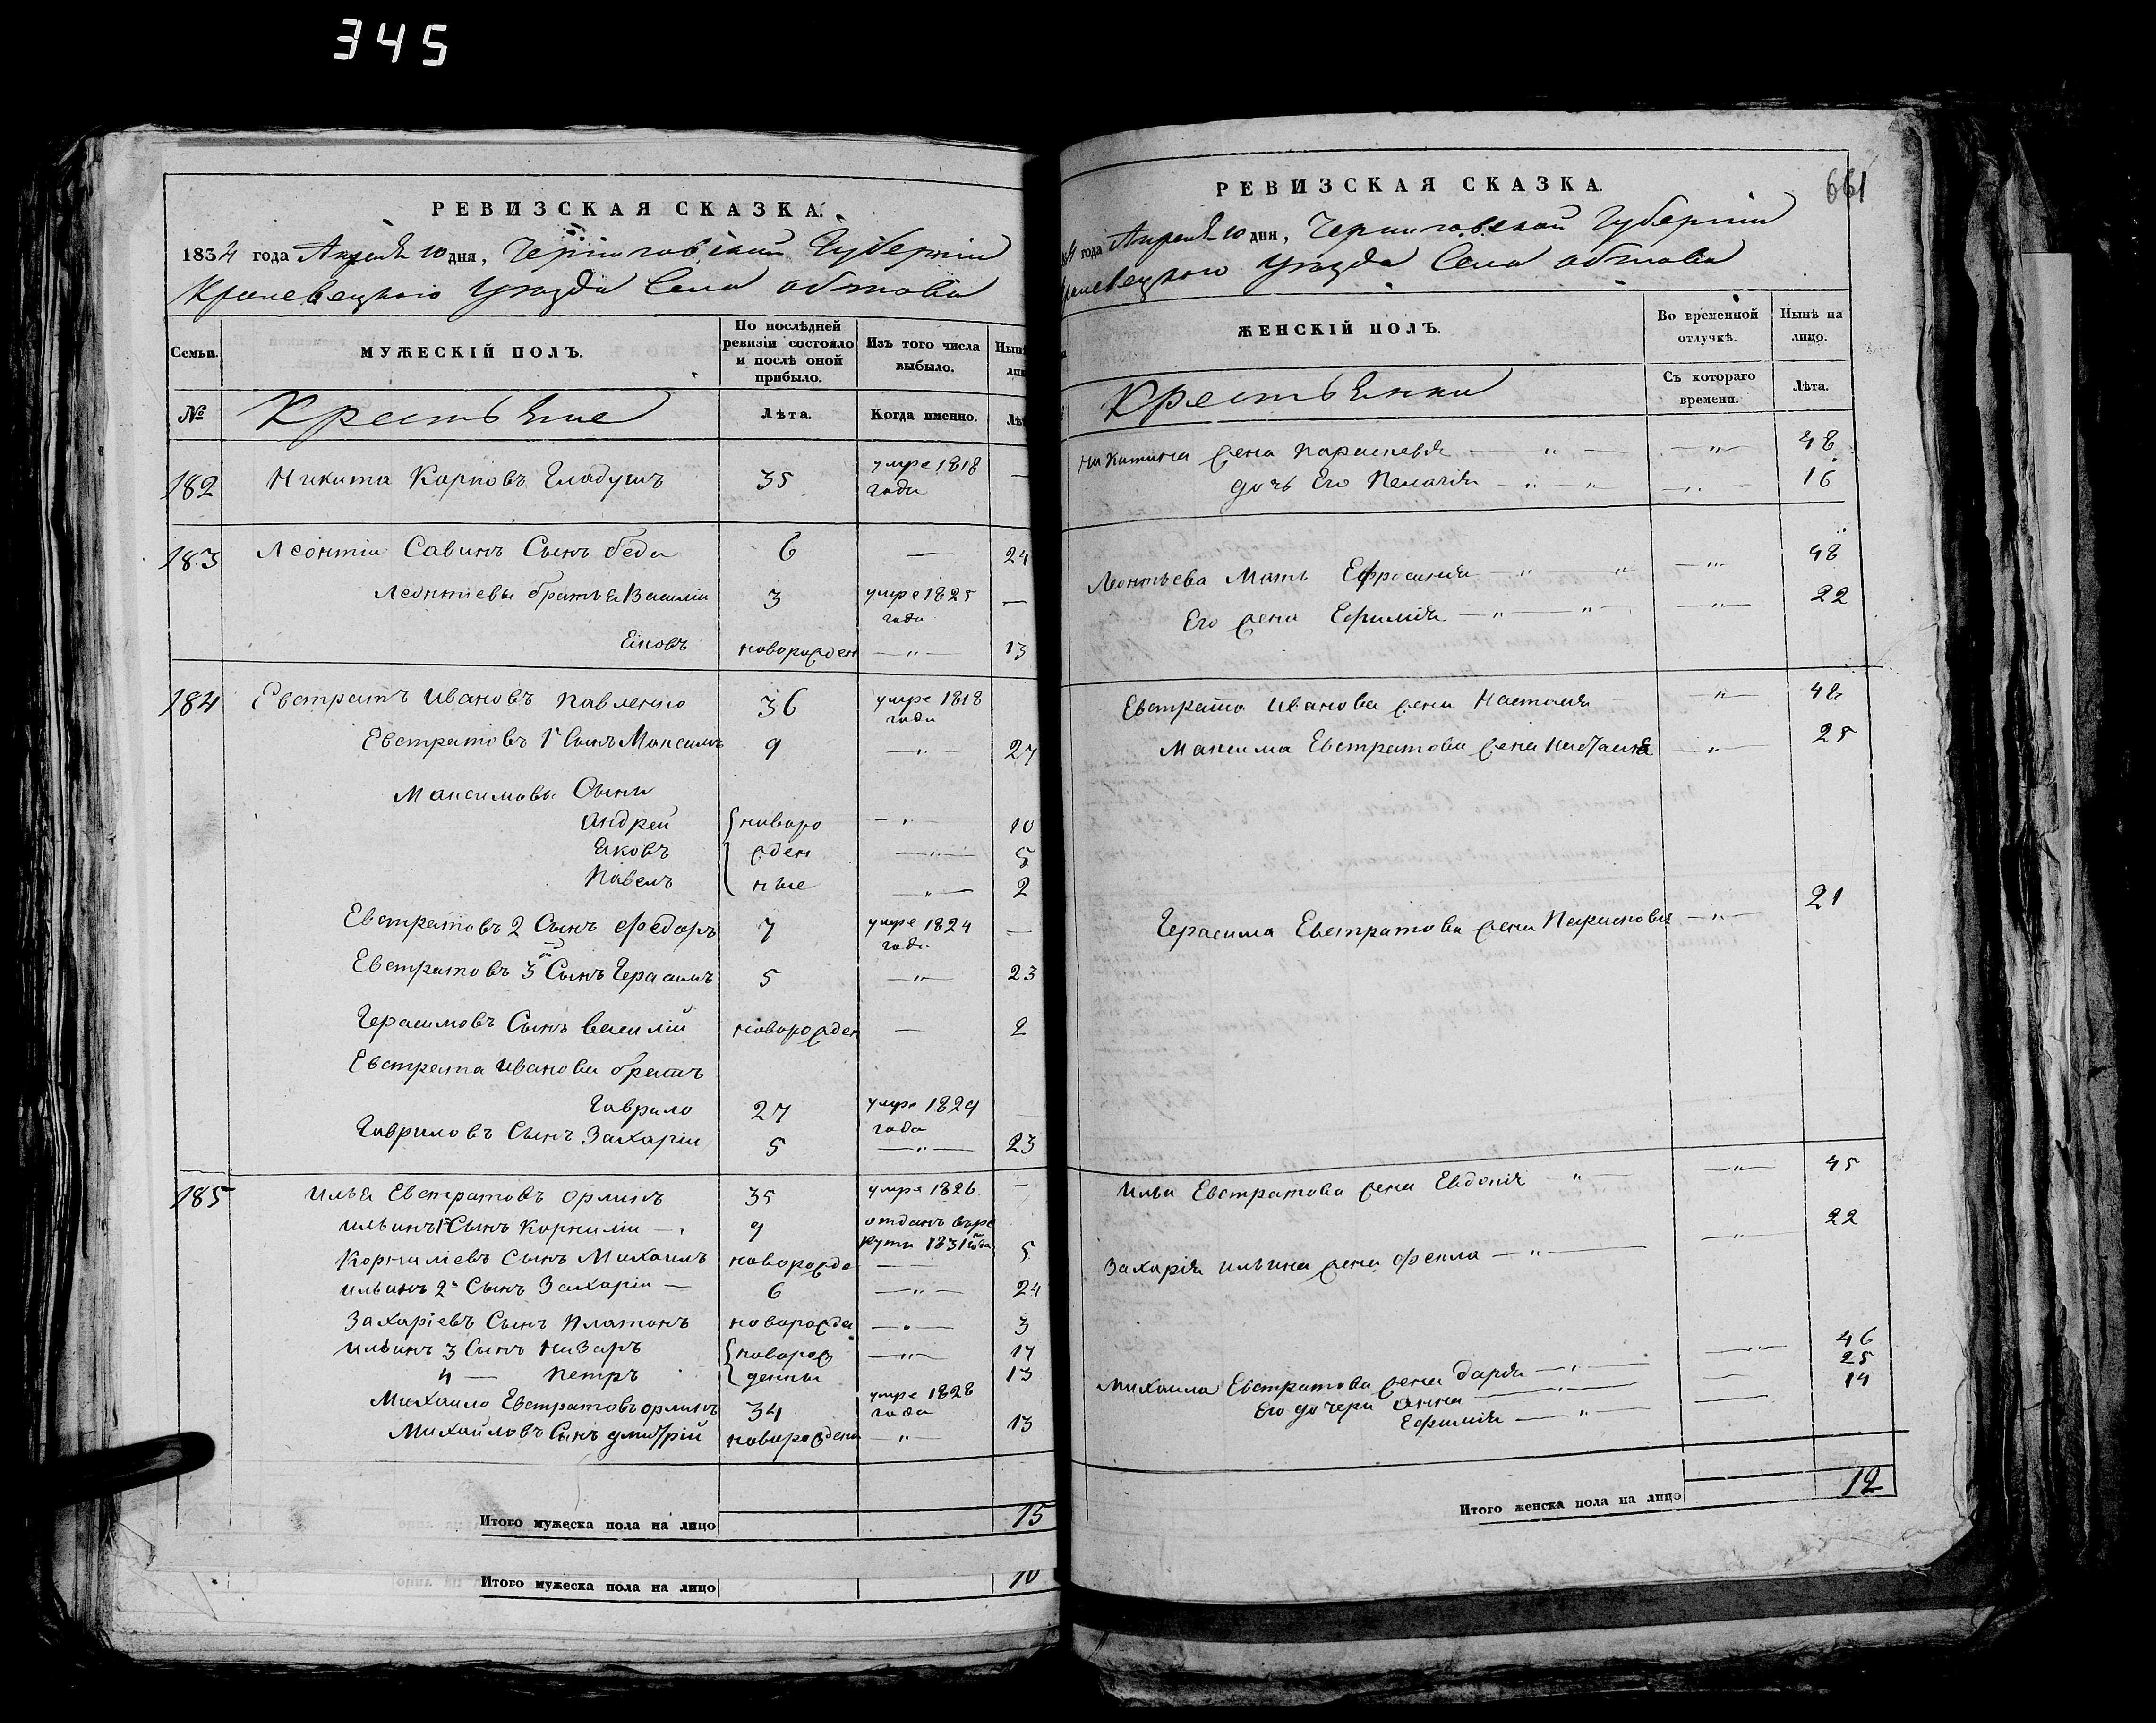 345
РЕВИЗСКАЯ СКАЗКА.
1834 года Апреля 10 дня, Черниговской Губернии
Кролевецкого Уѣзда Села обтова
Семьи. МУЖЕСКІЙ ПОЛЪ. По послѣдней ревизіи состояло и послѣ оной прибыло. Изъ того числа выбыло. Нынѣ
№ Крестьяне Лѣта. Когда именно. Лѣ
182 Никита Карповъ Гладушъ 35 умре 1818 года —
183 Леонтіи Савинъ Сынъ беда 6 — 24
Леонтіевы братья Василіи 3 умре 1825 года —
Ековъ новорожден — " — 13
184 Евстратъ Ивановъ Павленко 36 умре 1818 года
Евстратовъ 1й Сынъ Максимъ 9 — " — 27
Максимовы Сыны
Андрей новоро — " — 10
Яковъ жден — " — 5
Павелъ ные — " — 2
Евстратовъ 2 Сынъ Федоръ 7 умре 1824 года —
Евстратовъ 3й Сынъ Герасимъ 5 — " — 23
Герасимовъ Сынъ Василій новорожден — 2
Евстрата Иванова братъ
Гаврило 27 умре 1829 года
Гавриловъ Сынъ Захаріи 5 — " — 23
185 Илья Евстратовъ Орликъ 35 умре 1826 —
Ильинъ 1й Сынъ Корниліи — 9 отданъ въре круты 1831 года
Корниліевъ Сынъ Михаилъ новорожде — — 5
Ильинъ 2й Сынъ Захаріи — 6 — " — 24
Захаріевъ Сынъ Платонъ новорожде — " — 3
Ильинъ 3 Сынъ Назаръ новорож — " — 17
4 — Петръ денны 13
Михаило Евстратовъ Орликъ 34 умре 1828 года
Михайловъ Сынъ Дмитрій новорожден — " — 13
Итого мужеска пола на лицо 15
Итого мужеска пола на лицо 10
661
РЕВИЗСКАЯ СКАЗКА.
4 года Апреля 10 дня, Черниговской Губерніи
ролевецкого Уѣзда Села обтова
ЖЕНСКІЙ ПОЛЪ. Во временной отлучкѣ. Нынѣ на лицо.
Крестьянки Съ котораго времени. Лѣта.
Никитина жена Параскевія — " — — " — 48
дочь Его Пелагія — " — " — " — 16
Леонтьева Мать Ефросинія — " — " — " — 48
Его жена Ефимія — " — " — " — 22
Евстрата Иванова жена Настасия — " — 48
Максима Евстратова жена Настасия — " — 25
Герасима Евстратова жена — " — 21
Ильи Евстратова жена Евдокія — " — — " — 45
Захарія Ильина жена Фекла — " — — " — 22
Михаила Евстратова жена Дарія — " — — " — 46
Его дочери Анна — " — — 25
Ефимія — " — — 14
Итого женска пола на лицо 12